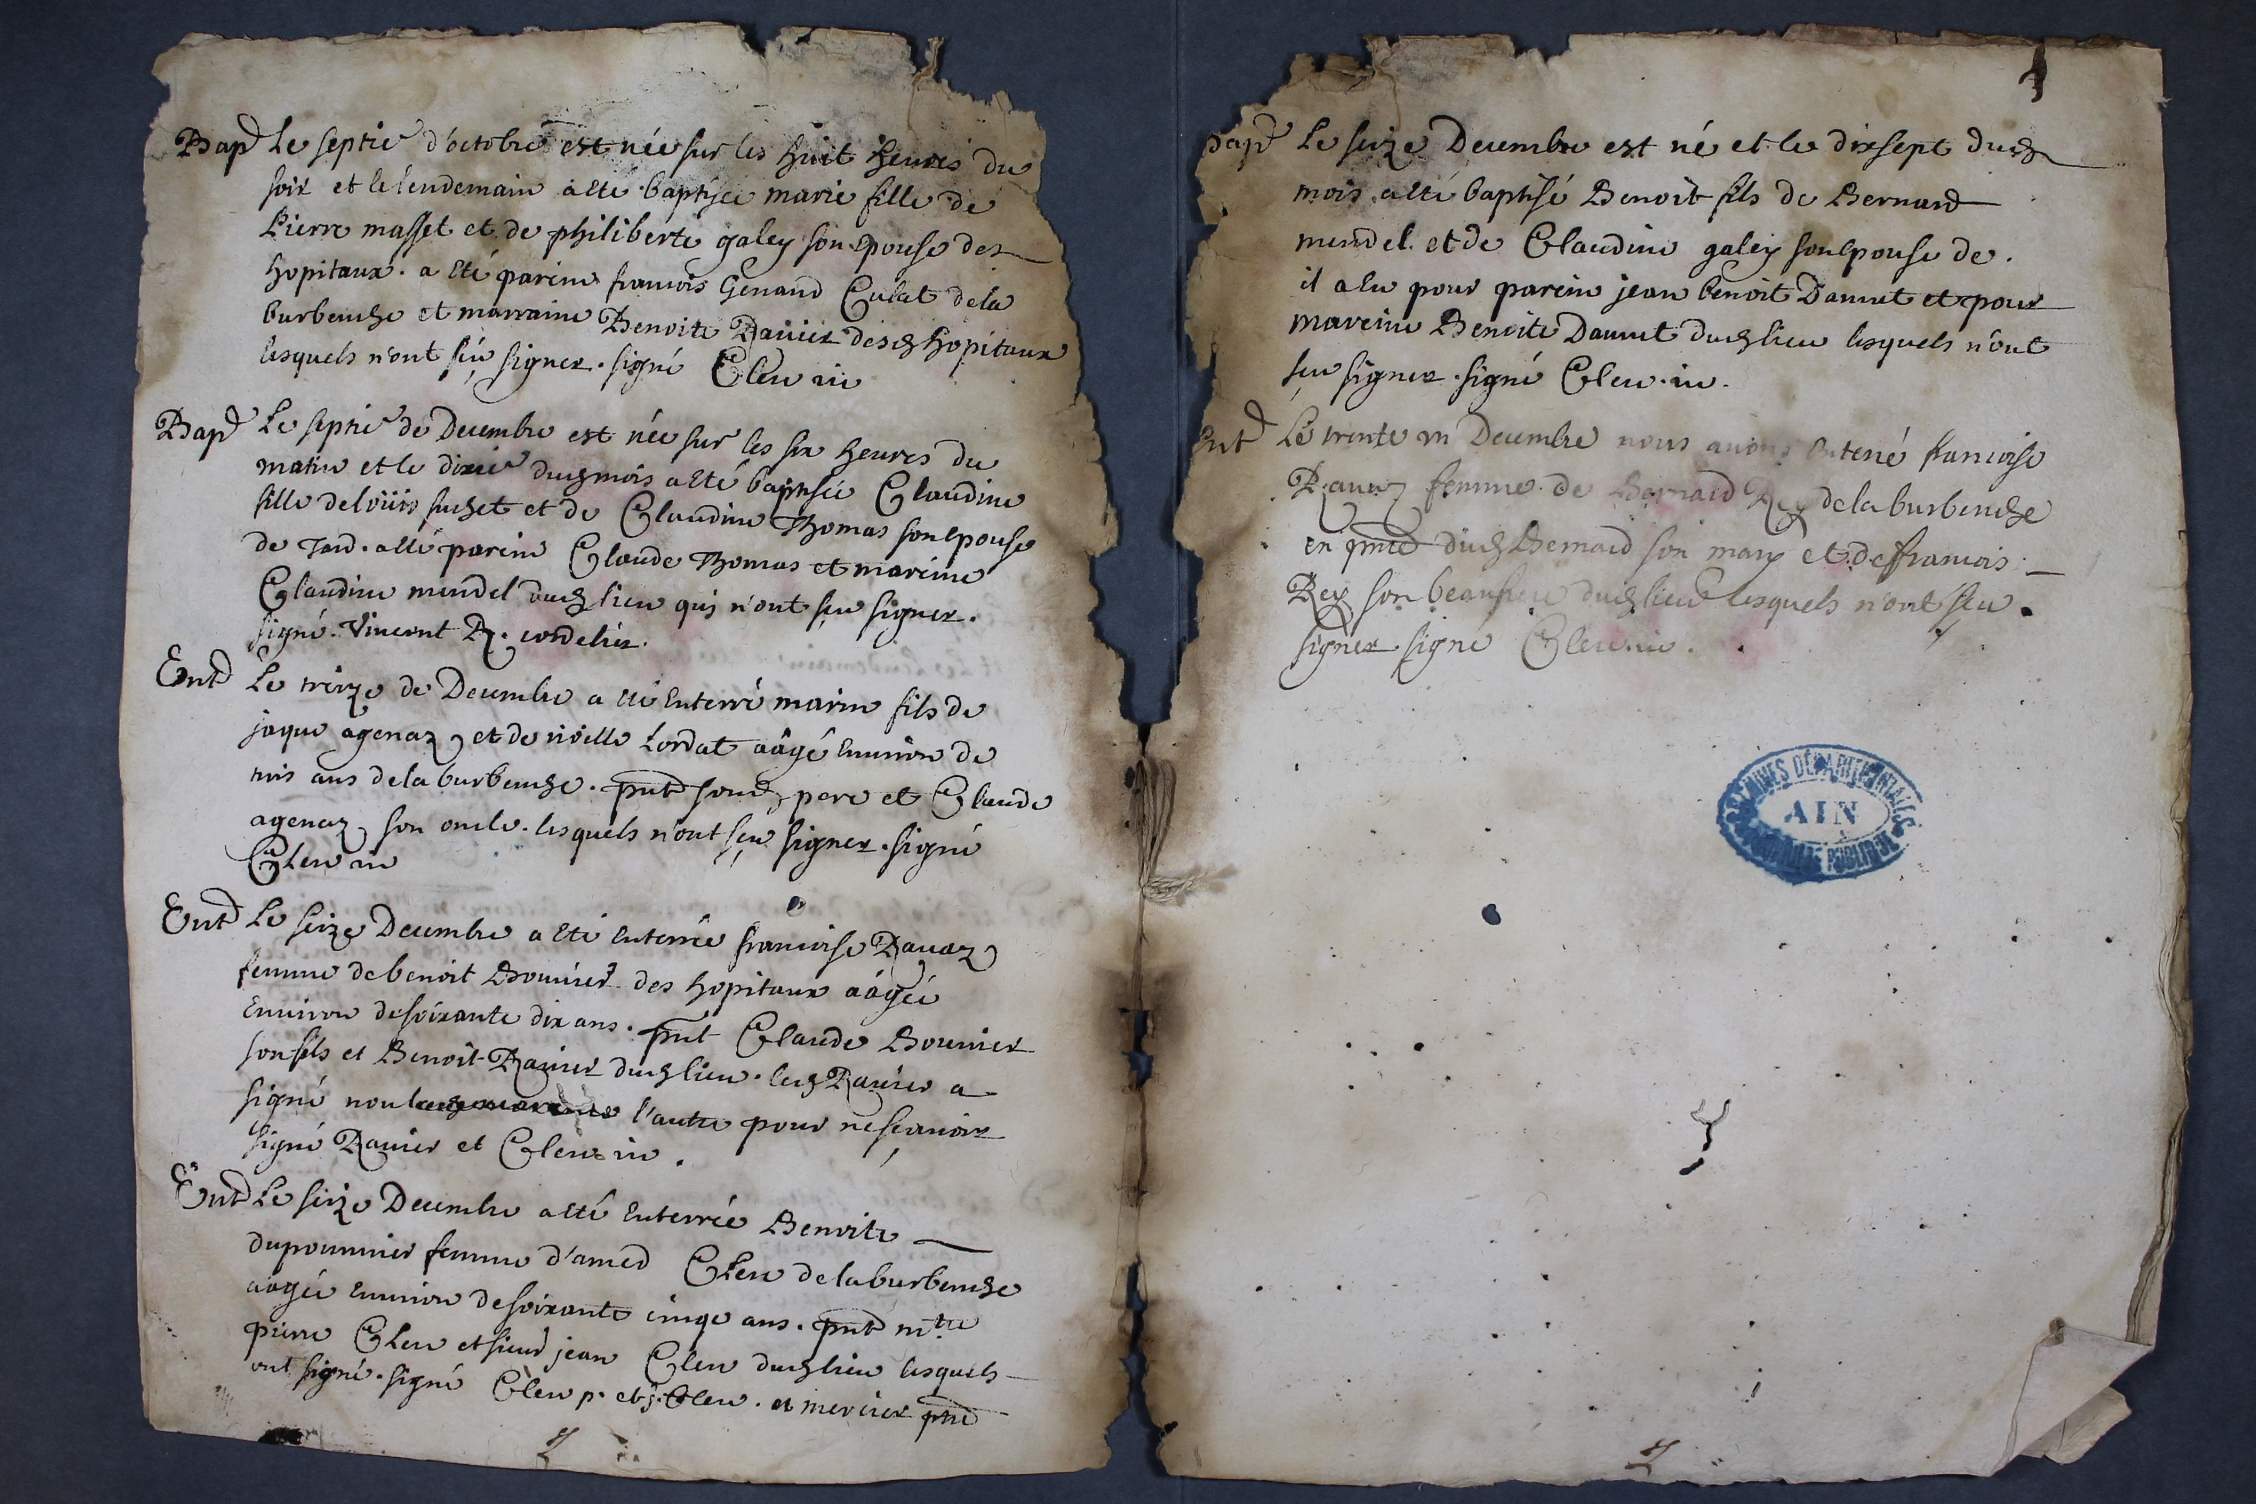 Bapt Le septie d'octobre est née sur les huit heures du
soir et le lendemain a eté baptisée marie fille de
Pierre masset et de philiberte galey son epouse des
hopitaux. a eté parine francois Genand Culat de la
burbenche et marraine Benoite Ravier desd hopitaux
lesquels n'ont sçu signer. signé Cleu vic
Bapt Le septie de Decembre est née sur les six heures du
matin et le dixie dud mois a eté baptisée Claudine
fille de loüis suchet et de Claudine Thomas son epouse
de . a eté parine Claude Thomas et marine
Claudine mendel dud lieu qui n'ont sçu signer.
signé. Vincent R. cordelier.
Ent Le treize de Decembre a eté Enterré marin fils de
jaque agenaz et de noëlle Lordat aâgé Environ de
trois ans de la burbenche. pnt sond pere et Claude
agenaz son oncle. lesquels n'ont sçu signer. signé
Cleu vic
Ent Le seize Decembre a eté enterrée francoise Ravaz
femme de benoit Bouvier des hopitaux aâgée
Environ de soixante dix ans. pnt Claude Bouvier
son fils et Benoit Ravier dud lieu. led Ravier a
signé non l'autre pour ne scavoir
signé Ravier et Cleu vic.
Ent Le seize Decembre a eté Enterrée Benoite
dupommier femme d'amed Cleu de la burbenche
aâgée Environ de soixante cinqe ans. pnt mtre
pierre Cleu et sieur jean Cleu dud lieu lesquels
ont signé. signé Cleu p. et j. Cleu. et mercier ptre
Bapt Le seize Decembre est né et le dixsept dud
mois a eté baptisé Benoit fils de Bernard
mendel et de Claudine galey son epouse de.
il a eu pour parine jean benoit Dannet et pour
mareine Benoite Dannet dud lieu lesquels n'ont
sçu signer. signé Cleu. vic.
Ent Le trente un Decembre nous avons Enterré francoise
Ravaz femme de Bernard Rey de la burbenche
en pnce dud Bernard son mary et de francois
Rey son beaufrere dud lieu lesquels n'ont sçu.
signer signé Cleu. vic.
ARCHIVES DÉPARTEMENTALES
AIN